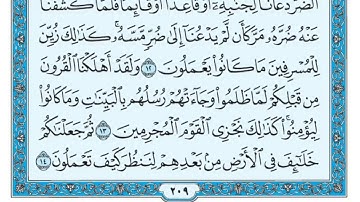 ٱلضُّرُّ دَعَانَا لِجَنۢبِهِۦٓ أَوْ قَاعِدًا أَوْ قَآئِمًا فَلَمَّا كَشَفْنَا
عَنْهُ ضُرَّهُۥ مَرَّ كَأَن لَّمْ يَدْعُنَآ إِلَىٰ ضُرٍّ مَّسَّهُۥ ۚ كَذَٰلِكَ زُيِّنَ
لِلْمُسْرِفِينَ مَا كَانُوا۟ يَعْمَلُونَ ١٢ وَلَقَدْ أَهْلَكْنَا ٱلْقُرُونَ
مِن قَبْلِكُمْ لَمَّا ظَلَمُوا۟ وَجَآءَتْهُمْ رُسُلُهُم بِٱلْبَيِّنَٰتِ وَمَا كَانُوا۟
لِيُؤْمِنُوا۟ ۚ كَذَٰلِكَ نَجْزِى ٱلْقَوْمَ ٱلْمُجْرِمِينَ ١٣ ثُمَّ جَعَلْنَٰكُمْ
خَلَٰٓئِفَ فِى ٱلْأَرْضِ مِنۢ بَعْدِهِمْ لِنَنظُرَ كَيْفَ تَعْمَلُونَ ١٤
٢٠٩